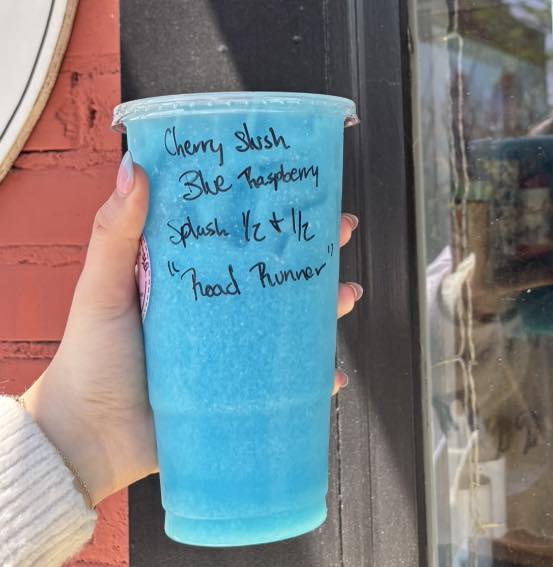 Cherry Slush
Blue Raspberry
Splash 1/2 + 1/2
"Road Runner"